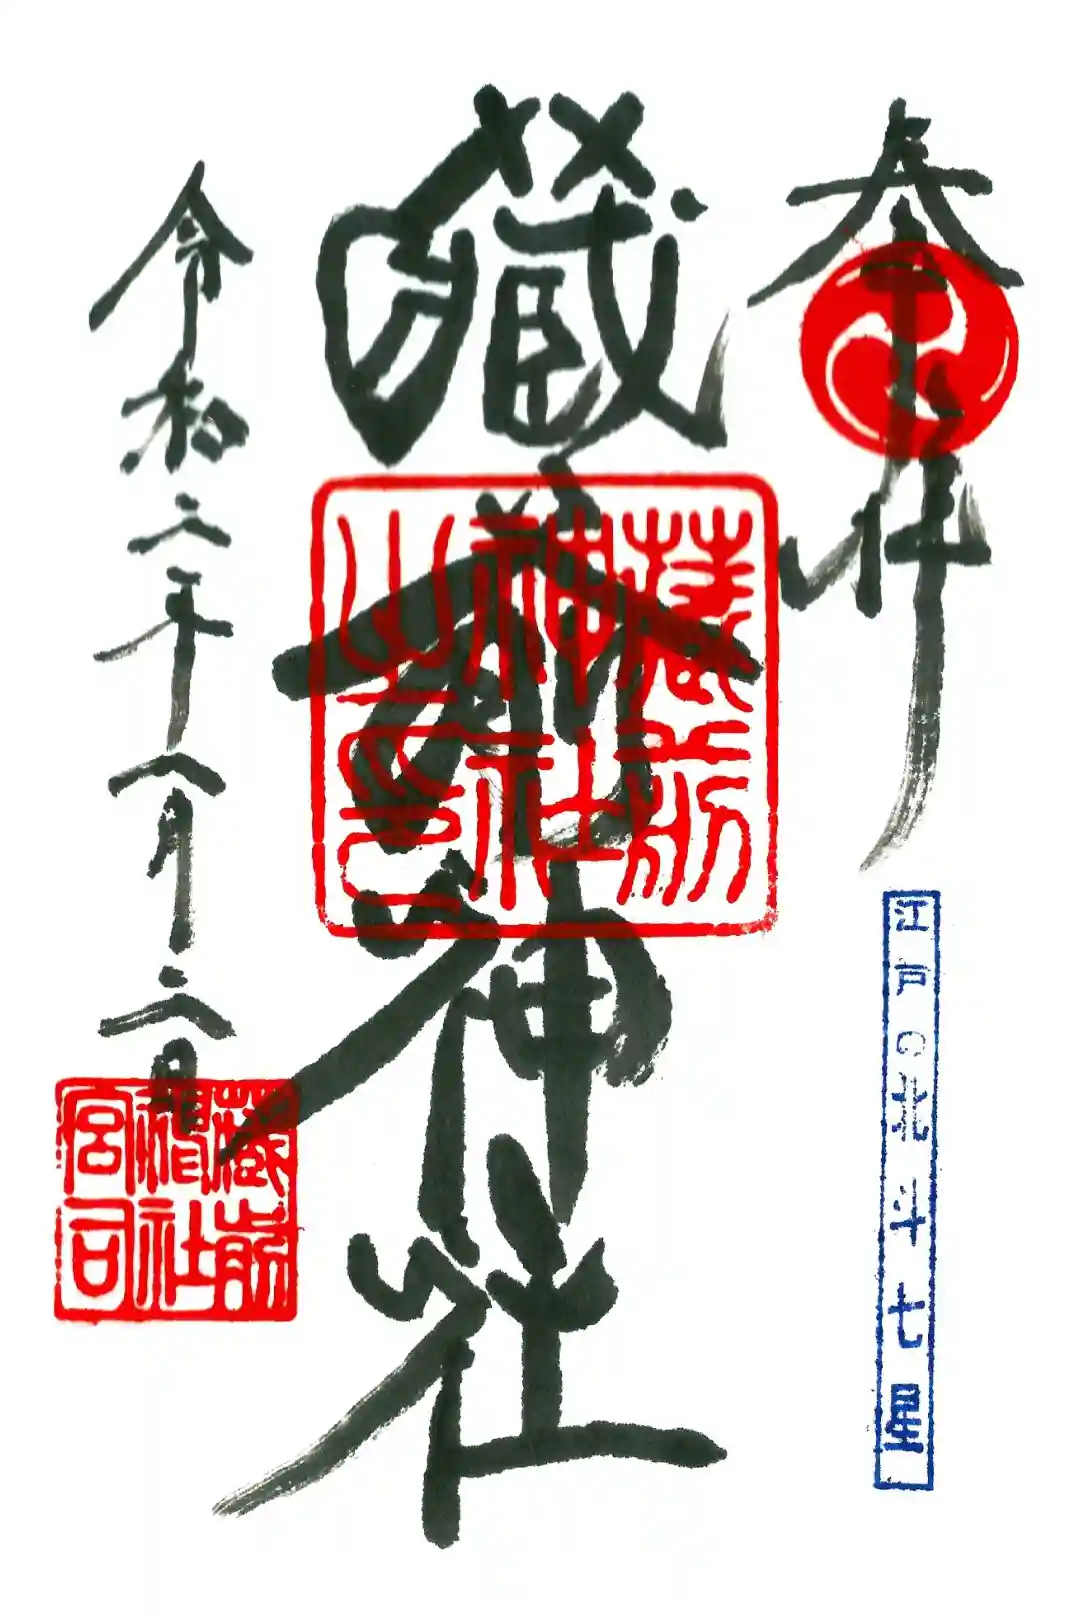 奉拝
江戸の北斗七星
藏前神社
藏前
神社
之印
令和二年八月二日
藏前
神社
宮司